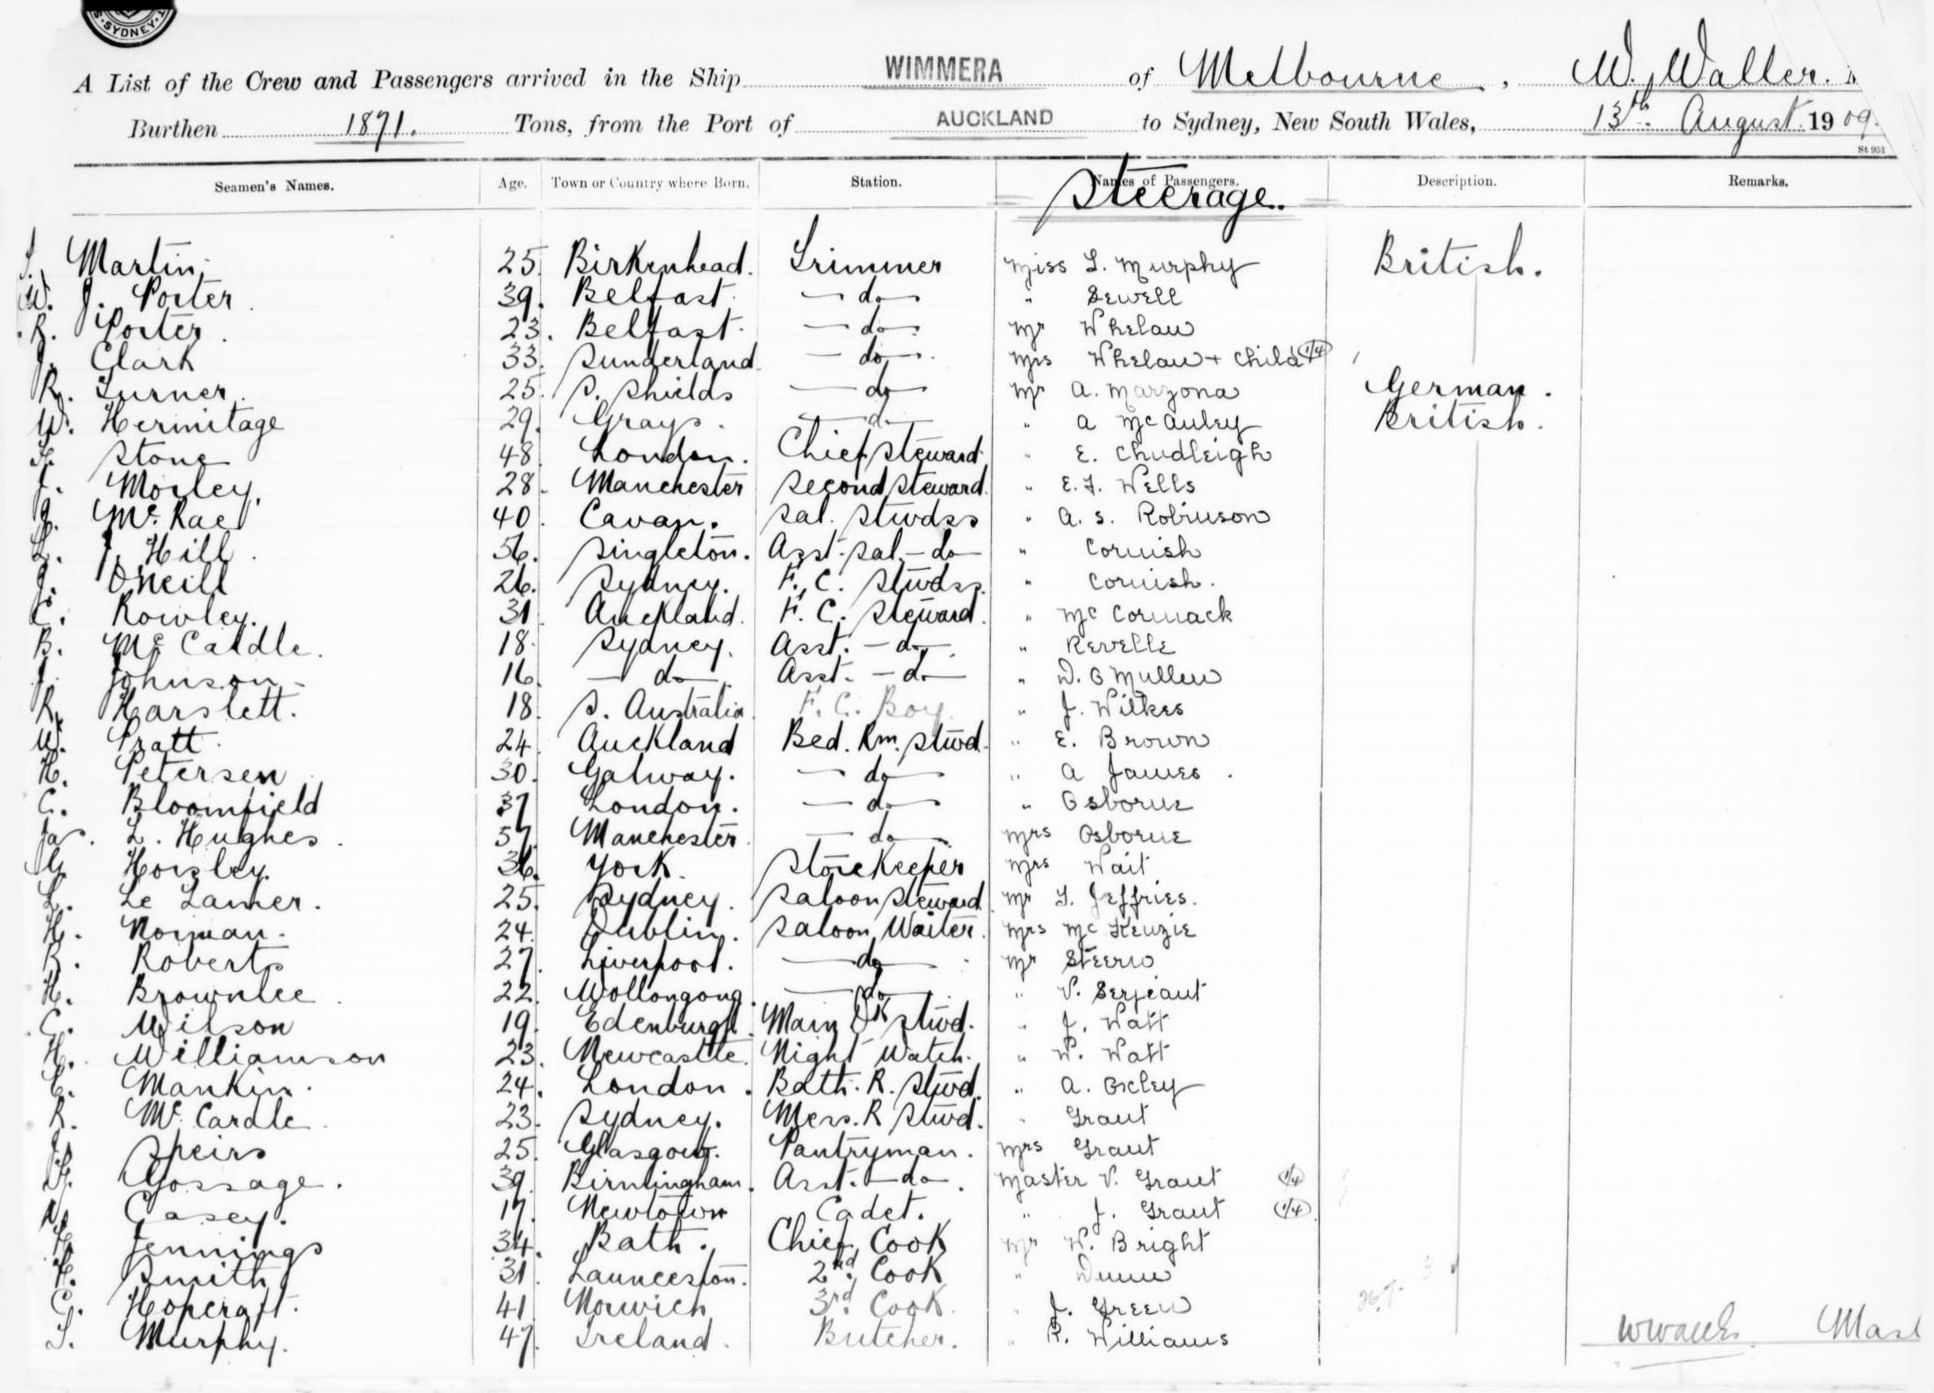 SYDNEY
A List of the Crew and Passengers arrived in the Ship WIMMERA of Melbourne, W. Waller.
Burthen 1871. Tons, from the Port of AUCKLAND to Sydney, New South Wales, 13th August 1909.
St 951
Seamen's Names. Age. Town or Country where Born. Station. Names of Passengers. Description. Remarks.
Steerage.
Martin 25. Birkenhead. Trimmer Miss L. Murphy British.
W. J. Porter. 39. Belfast. — do — " Sewell
R. Porter. 23. Belfast. — do — Mr Whelan
J. Clark 33. Sunderland. — do — Mrs Whelan + Child 1/4
R. Turner. 25. S. Shields — do — Mr A. Marzona German.
W. Hermitage 29. Grays. — do — " A McAuley British.
Stone 48. London. Chief Steward " E. Chudleigh
J. Morley. 28. Manchester Second Steward. " E. J. Wells
J. McRae 40. Cavan. Sal. Stwdss " A. S. Robinson
L. Hill. 56. Singleton. Asst. Sal. — do — " Cornish
J. O'Neill 26. Sydney. F. C. Stwdss. " Cornish.
C. Rowley. 31 Auckland. F. C. Steward. " McCormack
B. McCardle. 18. Sydney. Asst. — do — " Revelle
J. Johnson 16. — do — Asst. — do — " D. O Mullen
R. Harslett. 18. S. Australia F. C. Boy " J. Wilkes
W. Pratt. 24. Auckland Bed. Rm. Stwd. " E. Brown
H. Petersen 30. Galway. — do — " A James.
C. Bloomfield 37 London. — do — " Osborne
Jas. L. Hughes. 57. Manchester. — do — Mrs Osborne
G. Horsley. 36. York. Storekeeper Mrs Wait
L. Le Lamer. 25. Sydney. Saloon Steward Mr T. Jeffries.
H. Norman. 24. Dublin. Saloon Waiter. Mrs McKenzie
R. Roberts 27. Liverpool. — do — Mr Steern
H. Brownlee. 22. Wollongong. — do — " V. Serjeant
C. Wilson 19. Edenburgh Main Dk Stwd. " J. Watt
H. Williamson 23. Newcastle. Night Watch. " W. Watt
C. Mankin. 24. London. Bath. R. Stwd. " A. Oxley
R. McCardle. 23. Sydney. Mess. R Stwd. " Grant
J. Speirs 25. Glasgow. Pantryman. Mrs Grant
Gossage. 39. Birmingham. Asst. — do — Master V. Grant 1/4
Casey. 17. Newtown Cadet. " J. Grant 1/4
Jennings 34. Bath. Chief Cook Mr W. Bright
H. Smith 31. Launceston. 2nd Cook " Dunn
C. Hopcraft. 41. Norwich 3rd Cook. " J. Green
T. Murphy. 47. Ireland. Butcher. " R. Williams
Mast